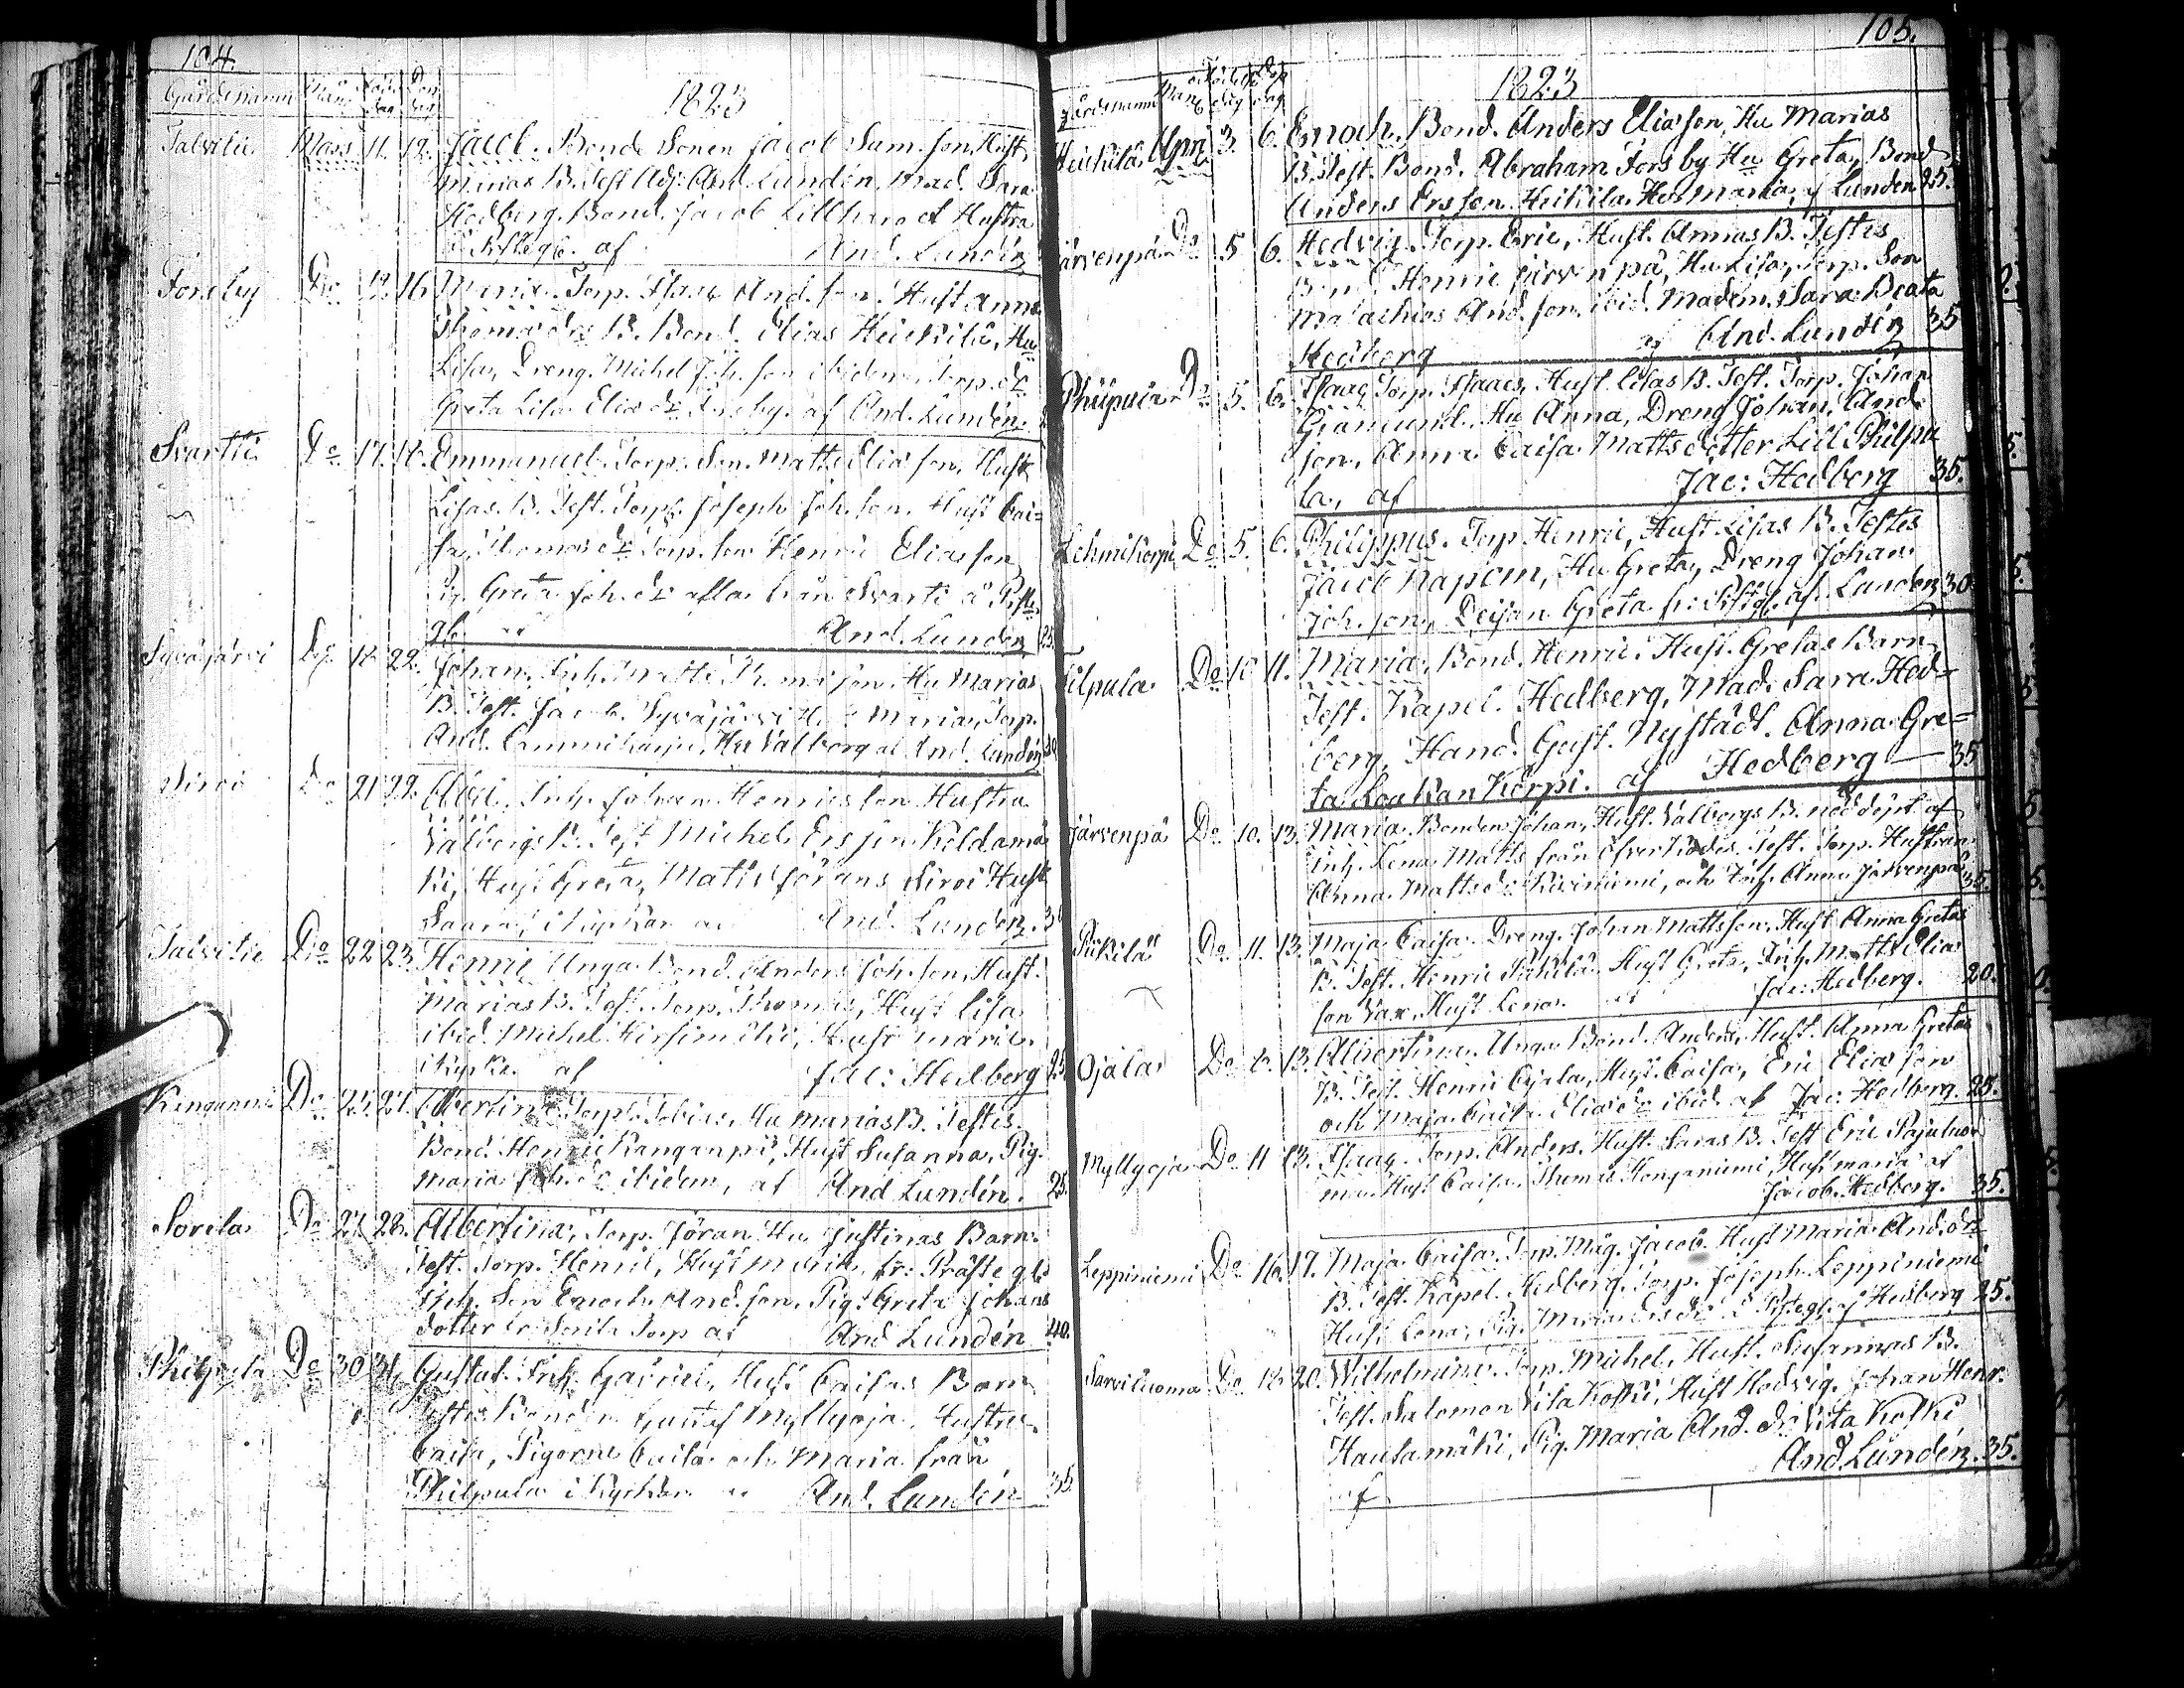 104.
Gårdsnamn Mån. Föd. dag Döp. dag
1823
Talvitie Mars 11. 12. Jacob. Bonde Sonen Jacob Sam. son, Hust.
Marias B. Test. Adj. And. Lundén, Mad. Sara
Hedberg. Bond. Jacob Lillharo et Hustru
af And. Lundén
Forsby Do 12. 16. Maria. Torp. Isaac And. son. Hust. Anna
Thomas dr B. Bond. Elias Heickilä, Hu
Lisa, Dreng. Michel Joh. son ibidem. Torp. dr
Greta Lisa Elias dr Forsby. af And. Lundén.
Svartti Do 17. 18. Emmanuel. Torp. Son. Matts Elias son, Hust.
Lisas. B. Test. Torp. Joseph Joh. son. Hust. Cai=
sa, Thomas dr Torp. son Henric Elias son
Pig. Greta Joh. dr alla från Svarti å Präste
gl. And. Lundén 25.
Syväjärvi Do 18. 22. Johan, Inh. Matts Thomas son. Hu Marias
B. Test. Jacob Syväjärvi Hu Maria, Torp.
And. Lamminkorpi, Hu Valborg af And. Lundén
Siroi Do 21. 22. Abel, Inh. Johan Henricsson Hustru
Valborgs B. Test. Michel Ers son Keldamä
ki, Hust. Greta, Matts Jörans Siroi Hust.
Saara, i Kyrkan af And. Lundén.
Talvitie Do 22. 23. Henric Unga Bond. Anders Joh. son, Hust.
Marias B. Test. Torp. Thomas, Hust. Lisa
ibid. Michel Hirsimäki, Hust. Maria.
i Kyrk. af Jac: Hedberg 25.
Kanganpä Do 25. 27. Albertina Torp. Tobias, Hu Marias B. Testis.
Bond. Henric Kanganpä, Hust. Susanna, Pig.
Maria Joh. dr ibidem, af And Lundén. 25.
Sorila Do 27. 28. Albertina, Torp. Jöran Hu Justinas Barn.
Test. Torp. Henric, Hust. Maria, fr: Präste gl.
Inh. Son Enoch And. son, Pig. Greta Johans
dotter fr. Sorila Torp af And Lundén 40.
Philpula Do 30. 31. Gustaf. Inh. Gabriel, Hust. Caisas Barn
Testis Bonden Gustaf Myllyoja, Hustru
Caisa, Pigorne Caisa och Maria från
Philpula i Kyrkan af And. Lundén 35.
105.
Gårdsnamn Mån. Föd. dag Döp. dag
1823
Heickilä April 3. 6. Enoch, Bond. Anders Elias son, Hu Marias
B. Test. Bond. Abraham Forsby Hu Greta, Bond
Anders Ersson Heickilä Hu Maria, af Lundén 25.
Järvenpä Do 5. 6. Hedvig Torp. Eric, Hust. Annas B. Testis
Bond. Henric Järvenpä, Hu Lisa, Torp. Son
Malachias And. son. ibid. Madem. Sara Beata
Hedberg af And. Lundén 35
Philpula Do 5. 6. Isaac, Torp. Isaacs, Hust. Lisas B. Test. Torp. Johan
Granlund, Hu Anna, Dreng Johan And.
son, Anna Caisa Matts dotter Lill Philpu
la, af Jac: Hedberg 35.
Lehmikorpi Do 5. 6. Philippus. Torp Henric, Hust. Lisas B. Testes
Jacob Kaponi, Hu Greta, Dreng Johan
Joh. son, Peijan Greta fr: Pstgl. af. Lundén 30
Filpula Do 10 11. Maria, Bond. Henric. Hust. Gretas Barn
Test. Kapel. Hedberg, Mad. Sara Hed=
berg, Hand. Gust. Nystädt. Anna Gre=
ta Loukankorpi. af Hedberg — 35
Järvenpä Do 10. 13. Maria Bonden Johan, Hust. Valborgs B. nöddöpt af
Inh. Lena Matts från Öfver Kiödis. Test. Torp. Hustrun
Anna Matts dr Kiviniemi, och Inh. Anna Järvenpä 35.
Pikilä Do 11. 13. Maja Caisa. Dreng. Johan Mattsson, Hust. Anna Gretas
B. Test. Henric Pikilä Hust Greta, Inh. Matts Elias
son Vare, Hust Lena. af Jac: Hedberg. 20.
Ojala Do 12. 13. Albertina. Unga Bond. Anders, Hust. Anna Gretas
B. Test. Henric Ojala, Hust. Caisa, Eric Elias son
och Maja Caisa Elias dr ibid. af Jac: Hedberg. 25.
Myllyoja Do 11 13. Isaac. Torp. Anders. Hust. Saras B. Test Eric Pajuluo
ma. Hust Caisa. Thomas Konganiemi, Hust. Maria af
Jacob. Hedberg. 35.
Leppiniemi Do 16. 17. Maja Caisa, Torp. Måg. Jacob. Hust Maria And. drs
B. Test. Kapel. Hedberg. Torp. Joseph. Leppiniemi
Hust. Lena, Pig. Maria Ers dr å Pstegl. af Hedberg 25.
Sarviluoma Do 18. 20. Wilhelmina. Torp. Michel, Hust. Susannas B.
Test. Salomon Vita Koski, Hust Hedvig. Johan Henr.
Hautamäki, Pig. Maria And. dr Vita Koski
af And. Lundén. 35.